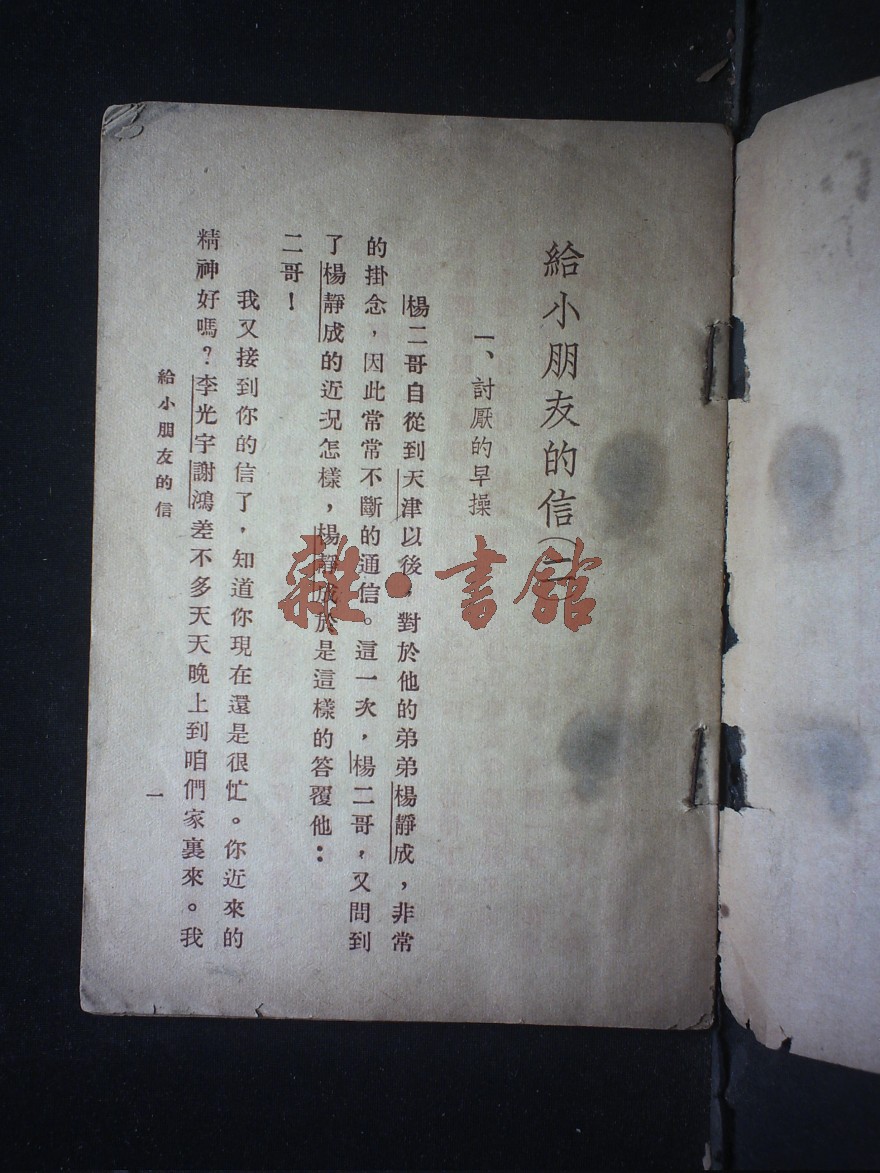 給小朋友的信(二)
一、討厭的早操
楊二哥自從到天津以後，對於他的弟弟楊靜成，非常
的掛念，因此常常不斷的通信。這一次，楊二哥，又問到
了楊靜成的近況怎樣，楊靜成於是這樣的答覆他：
二哥！
我又接到你的信了，知道你現在還是很忙。你近來的
精神好嗎？李光宇謝鴻差不多天天晚上到咱們家裏來。我
給小朋友的信
一
雜·書館